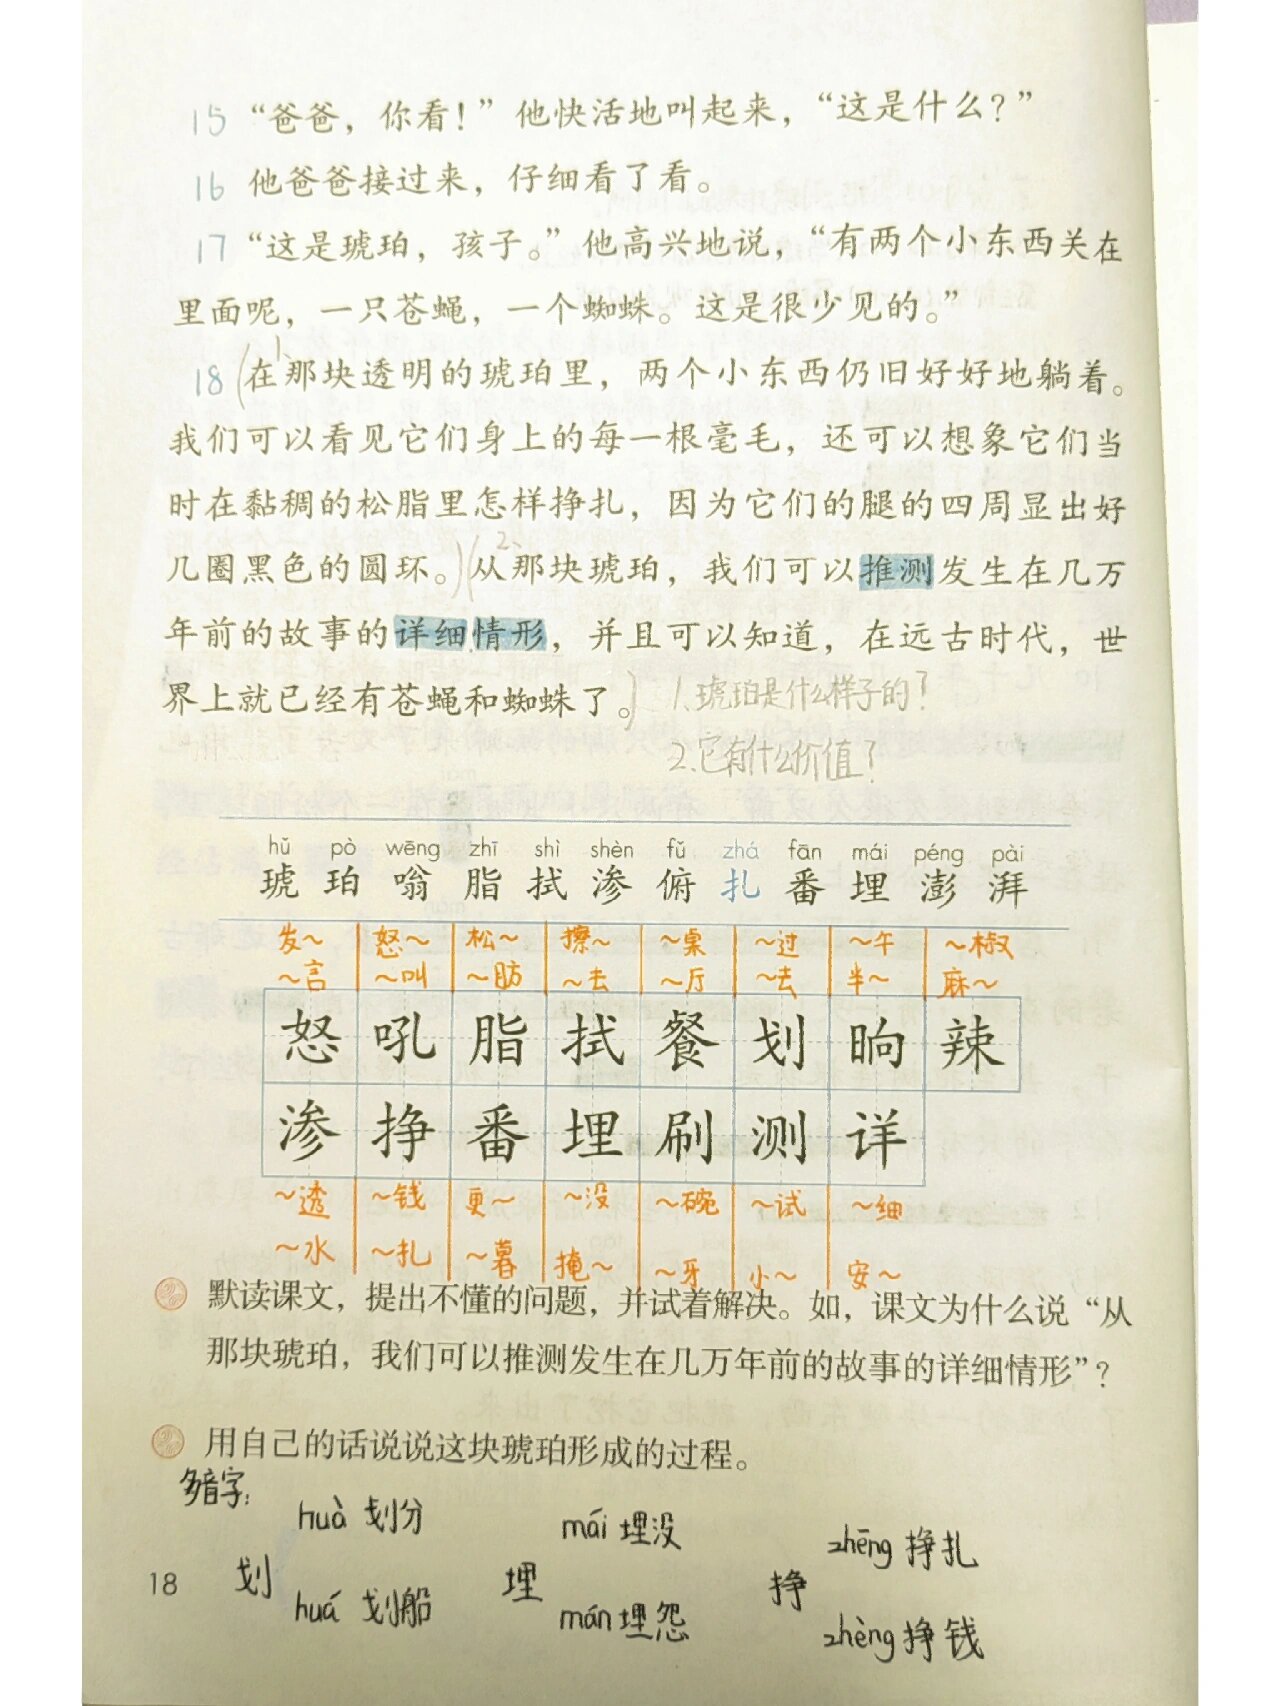 15 “爸爸，你看！”他快活地叫起来，“这是什么？”
16 他爸爸接过来，仔细看了看。
17 “这是琥珀，孩子。”他高兴地说，“有两个小东西关在
里面呢，一只苍蝇，一个蜘蛛。这是很少见的。”
18 (1、在那块透明的琥珀里，两个小东西仍旧好好地躺着。
我们可以看见它们身上的每一根毫毛，还可以想象它们当
时在黏稠的松脂里怎样挣扎，因为它们的腿的四周显出好
几圈黑色的圆环。)(2、从那块琥珀，我们可以推测发生在几万
年前的故事的详细情形，并且可以知道，在远古时代，世
界上就已经有苍蝇和蜘蛛了。) 1.琥珀是什么样子的？
2.它有什么价值？
hǔ pò wēng zhī shì shèn fǔ zhá fān mái péng pài
琥 珀 嗡 脂 拭 渗 俯 扎 番 埋 澎 湃
发～ 怒～ 松～ 擦～ ～桌 ～过 ～午 ～椒
～言 ～叫 ～肪 ～去 ～厅 ～去 半～ 麻～
怒 吼 脂 拭 餐 划 晌 辣
渗 挣 番 埋 刷 测 详
～透 ～钱 更～ ～没 ～碗 ～试 ～细
～水 ～扎 ～暮 掩～ ～牙 小～ 安～
默读课文，提出不懂的问题，并试着解决。如，课文为什么说“从
那块琥珀，我们可以推测发生在几万年前的故事的详细情形”？
用自己的话说说这块琥珀形成的过程。
多音字：
huà 划分 mái 埋没 zhēng 挣扎
18 划 埋 挣
huá 划船 mán 埋怨 zhèng 挣钱